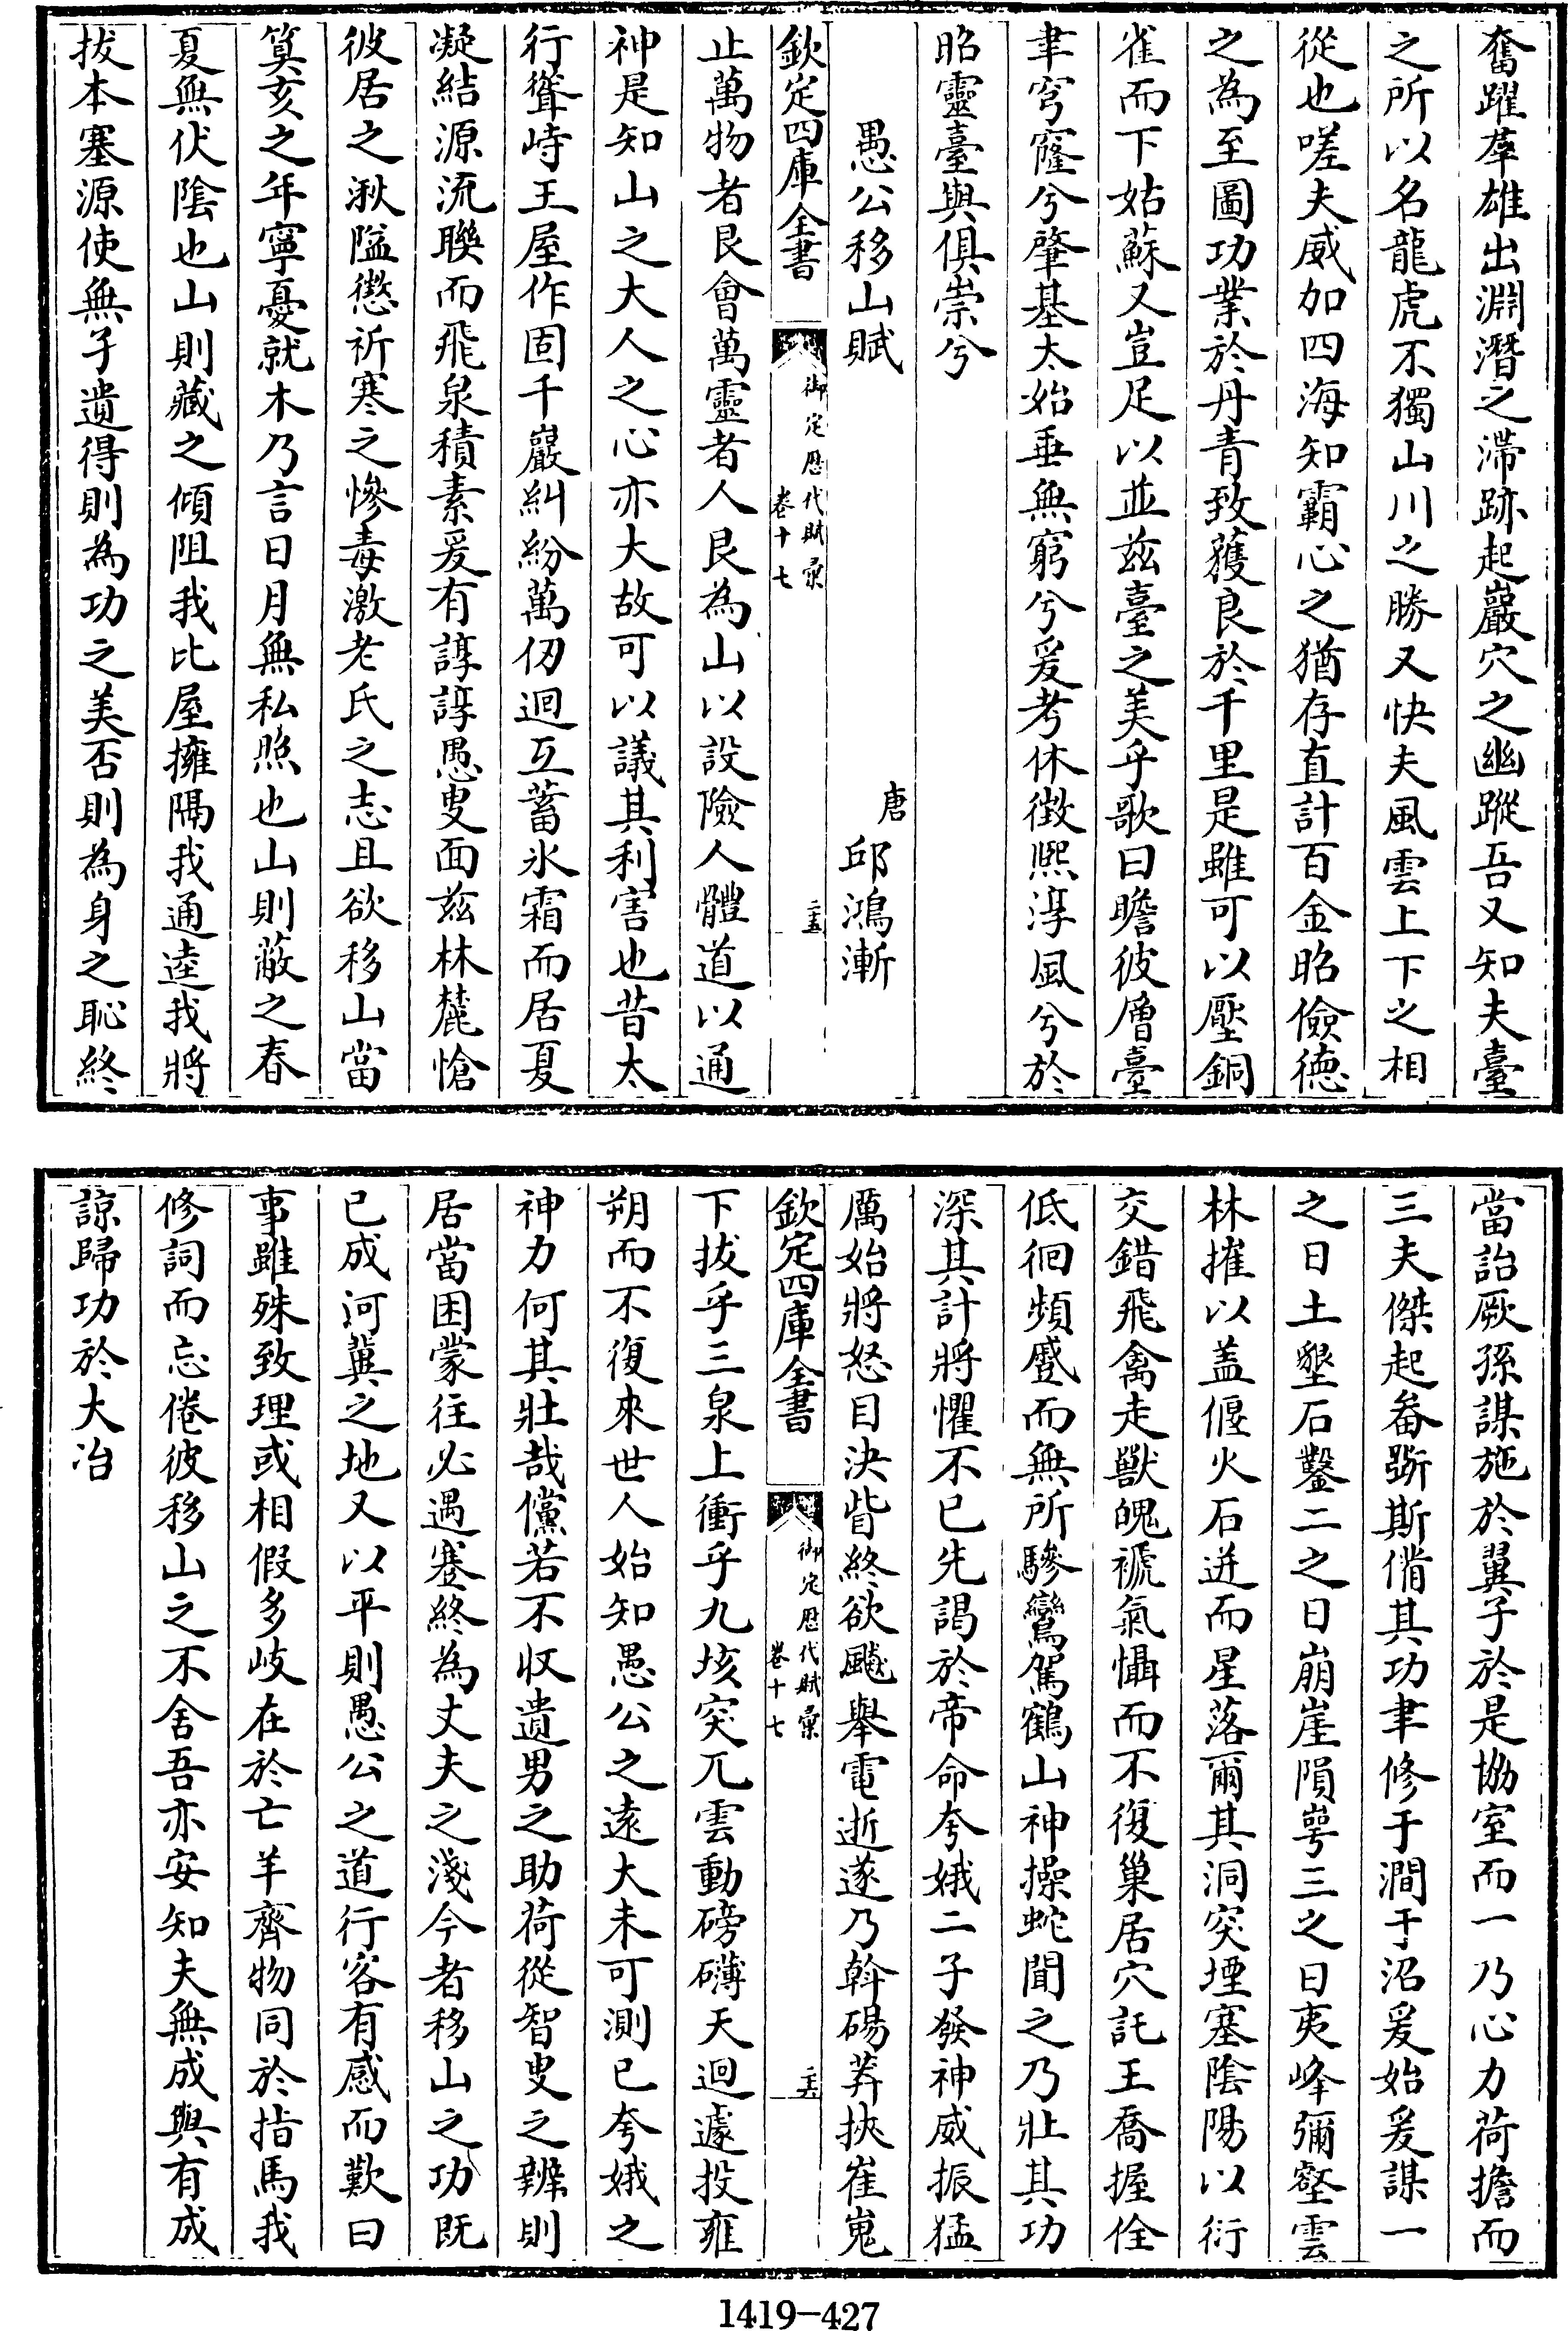 奮躍羣雄出淵潛之滯跡起巖穴之幽蹤吾又知夫臺
之所以名龍虎不獨山川之勝又快夫風雲上下之相
從也嗟夫威加四海知霸心之猶存直計百金昭儉德
之為至圖功業於丹青致獲良於千里是雖可以壓銅
雀而下姑蘇又豈足以並茲臺之美乎歌曰瞻彼層臺
聿穹窿兮肇基太始垂無窮兮爰考休徴熙淳風兮於
昭靈臺與俱崇兮
愚公移山賦
唐 邱鴻漸
欽定四庫全書
御定歴代賦彙
卷十七
二十五
止萬物者艮會萬靈者人艮為山以設險人體道以通
神是知山之大人之心亦大故可以議其利害也昔太
行聳峙王屋作固千巖糾紛萬仭迴互蓄氷霜而居夏
凝結源流聯而飛泉積素爰有諄諄愚叟面茲林麓愴
彼居之湫隘懲祈寒之慘毒激老氏之志且欲移山當
算亥之年寧憂就木乃言日月無私照也山則蔽之春
夏無伏陰也山則藏之傾阻我比屋擁隔我通逵我將
拔本塞源使無孑遺得則為功之美否則為身之恥終
當詒厥孫謀施於翼子於是協室而一乃心力荷擔而
三夫傑起畚斸斯偹其功聿修于澗于沼爰始爰謀一
之日土墾石鑿二之日崩崖隕崿三之日夷峰彌壑雲
林摧以盖偃火石迸而星落爾其洞突堙塞陰陽以衍
交錯飛禽走獸魄褫氣懾而不復巢居穴託王喬握佺
低徊頻蹙而無所驂鸞駕鶴山神操蛇聞之乃壯其功
深其計將懼不已先謁於帝命夸娥二子發神威振猛
厲始將怒目決眥終欲飈舉電逝遂乃斡碭莽挾崔嵬
欽定四庫全書
御定歴代賦彙
卷十七
二十六
下拔乎三泉上衝乎九垓突兀雲動磅礴天迴遽投雍
朔而不復來世人始知愚公之遠大未可測已夸娥之
神力何其壯哉儻若不收遺男之助荷從智叟之辨則
居當困蒙往必遇蹇終為丈夫之淺今者移山之功既
已成河冀之地又以平則愚公之道行客有感而歎曰
事雖殊致理或相假多岐在於亡羊齊物同於指馬我
修詞而忘倦彼移山之不舍吾亦安知夫無成與有成
諒歸功於大冶
1419-427